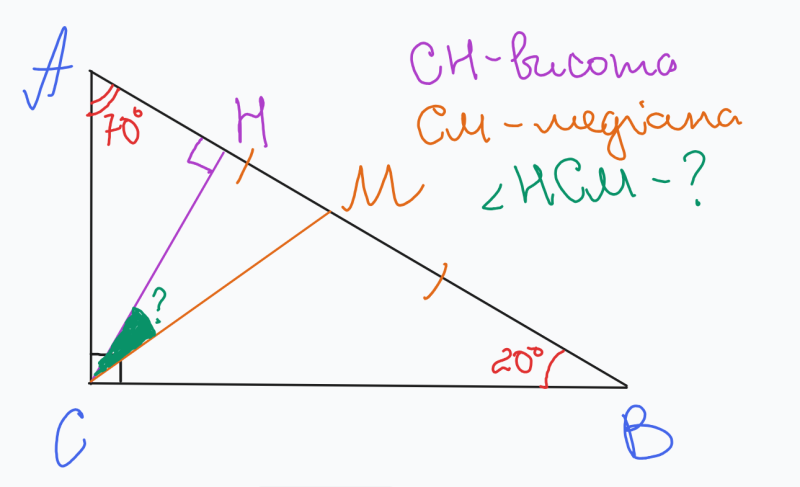 A
H
CH-висота
70°
M
CM-медіана
<HCM-?
?
20°
C
B